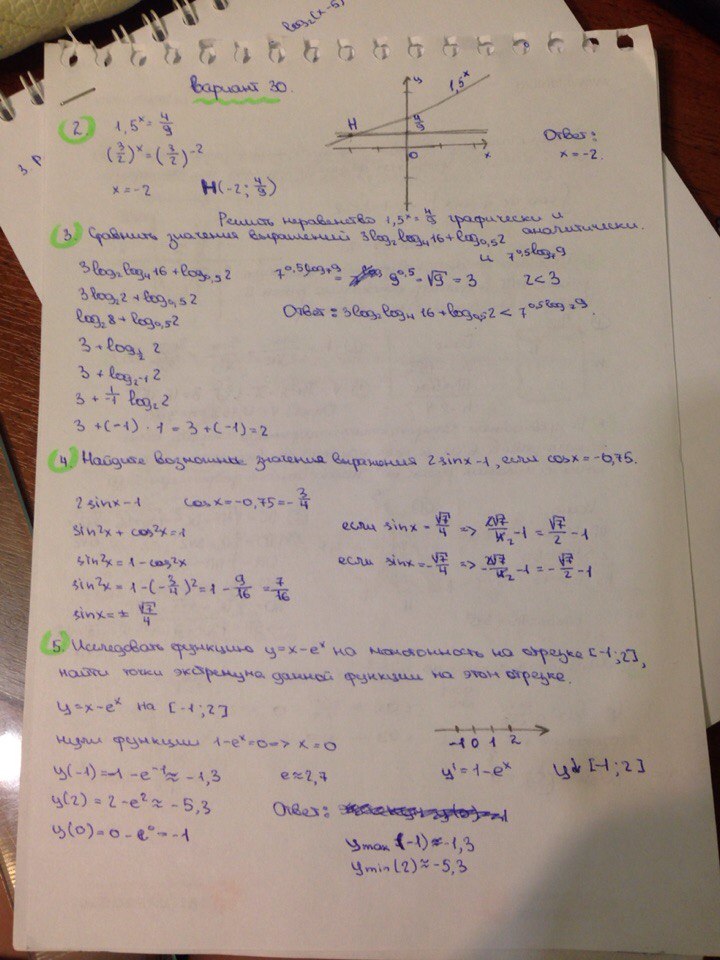 log₂(x-5)
Вариант 30.
2
1,5ˣ = 4/9
(3/2)ˣ = (3/2)⁻²
x = -2
H(-2; 4/9)
y
1,5ˣ
H
4/9
0
x
Ответ:
x = -2.
Решить неравенство 1,5ˣ = 4/9 графически и
аналитически.
3. Сравнить значения выражений 3log₂log₄16 + log₀,₅2
и 7^(0,5log₇9)
3log₂log₄16 + log₀,₅2
3log₂2 + log₀,₅2
log₂8 + log₀,₅2
3 + log_(1/2) 2
3 + log_(2⁻¹) 2
3 + 1/-1 log₂2
3 + (-1) · 1 = 3 + (-1) = 2
7^(0,5log₇9) = 9^0,5 = √9 = 3
2 < 3
Ответ: 3log₂log₄16 + log₀,₅2 < 7^(0,5log₇9).
4. Найдите возможные значения выражения 2sinx-1, если cosx = -0,75.
2sinx-1
cosx = -0,75 = -3/4
sin²x + cos²x = 1
sin²x = 1 - cos²x
sin²x = 1 - (-3/4)² = 1 - 9/16 = 7/16
sinx = ± √7/4
если sinx = √7/4 => 2√7/4₂ - 1 = √7/2 - 1
если sinx = -√7/4 => -2√7/4₂ - 1 = -√7/2 - 1
5. Исследовать функцию y = x - eˣ на монотонность на отрезке [-1;2],
найти точки экстремума данной функции на этом отрезке.
y = x - eˣ на [-1;2]
нули функции 1 - eˣ = 0 => x = 0
y(-1) = -1 - e⁻¹ ≈ -1,3
e ≈ 2,7
y(2) = 2 - e² ≈ -5,3
y(0) = 0 - e⁰ = -1
-1 0 1 2
y' = 1 - eˣ
y↓ [-1;2]
Ответ:
y max (-1) ≈ -1,3
y min (2) ≈ -5,3